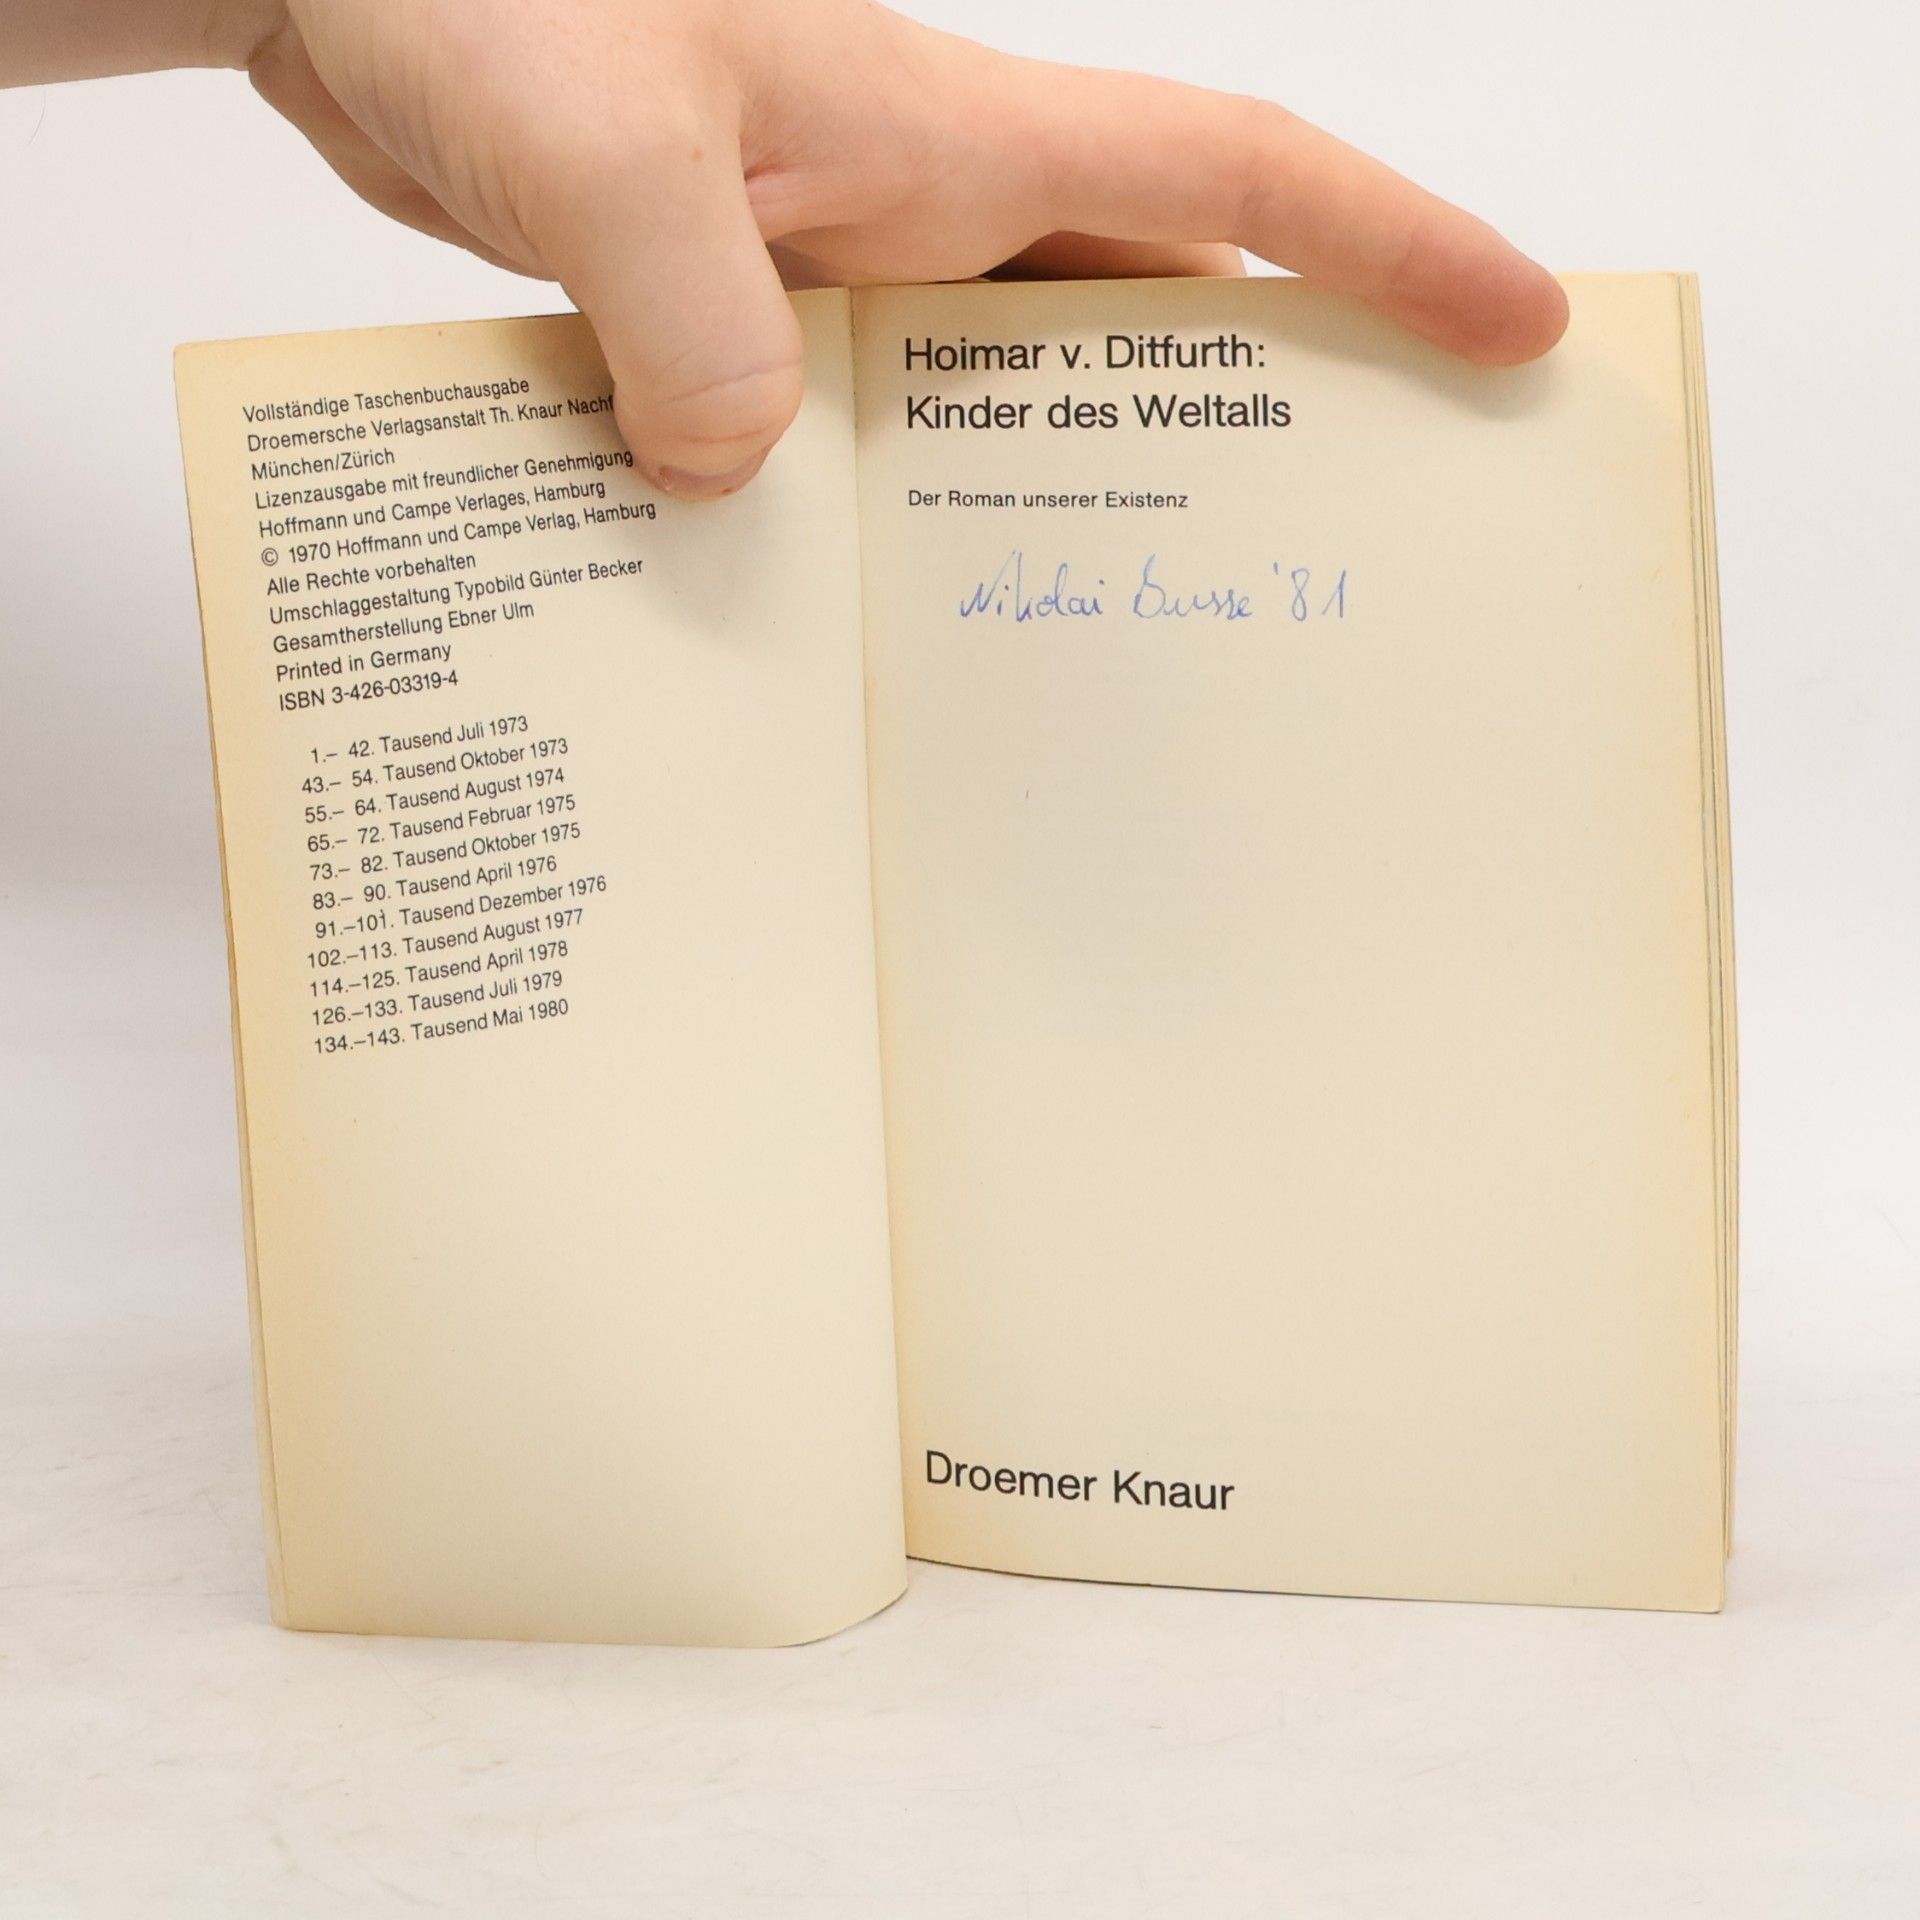 Vollständige Taschenbuchausgabe
Droemersche Verlagsanstalt Th. Knaur Nachf
München/Zürich
Lizenzausgabe mit freundlicher Genehmigung
Hoffmann und Campe Verlages, Hamburg
© 1970 Hoffmann und Campe Verlag, Hamburg
Alle Rechte vorbehalten
Umschlaggestaltung Typobild Günter Becker
Gesamtherstellung Ebner Ulm
Printed in Germany
ISBN 3-426-03319-4
1.– 42. Tausend Juli 1973
43.– 54. Tausend Oktober 1973
55.– 64. Tausend August 1974
65.– 72. Tausend Februar 1975
73.– 82. Tausend Oktober 1975
83.– 90. Tausend April 1976
91.–101. Tausend Dezember 1976
102.–113. Tausend August 1977
114.–125. Tausend April 1978
126.–133. Tausend Juli 1979
134.–143. Tausend Mai 1980
Hoimar v. Ditfurth:
Kinder des Weltalls
Der Roman unserer Existenz
Nikolai Busse '81
Droemer Knaur